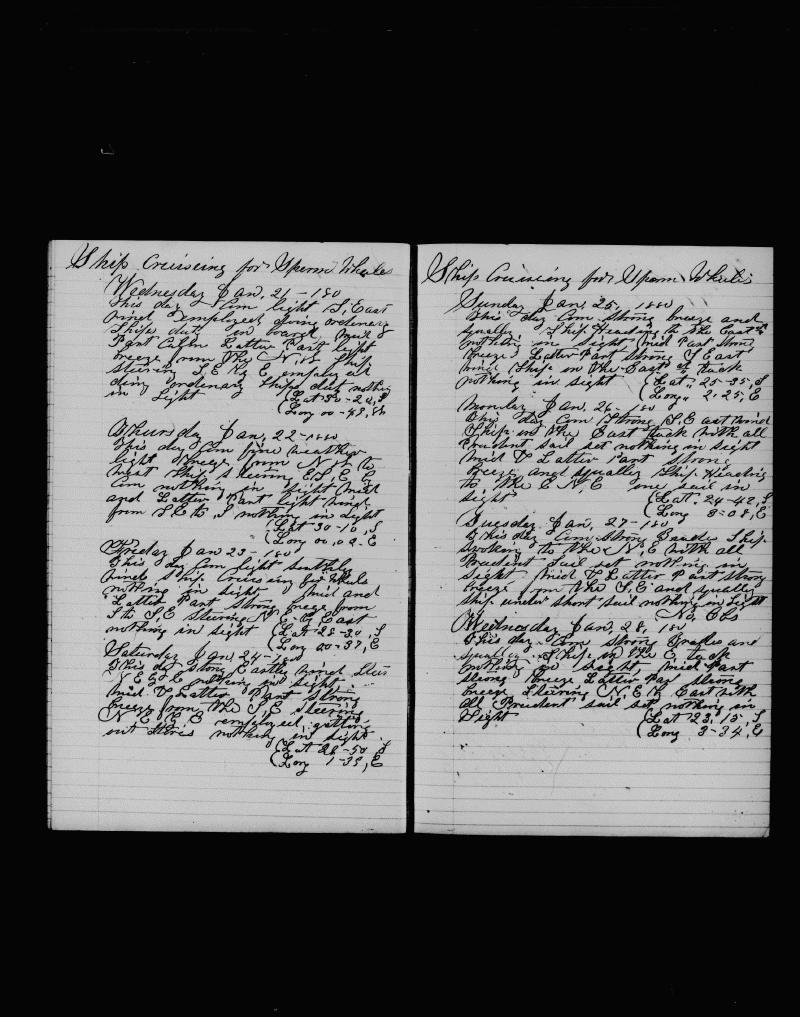 Ship Cruiseing for Sperm Whales
Wednesday Jan, 21 - 180
This day Com light S, East
wind Employed doing ordenary
Ships duty on board, Mid
Part Calm Latter Part light
breeze from the N, Ship
steering S, E by E employed
doing ordenary Ships duty nothing
in Sight (Lat 30-24, S
(Long 00-43,
Thursday Jan, 22 - 1880
This day Com fine weather
light breeze from N to
West Ship steering E, S, E
Com nothing in sight Mid
and Latter Part light winds
from S, E to S nothing in sight
Lat 30-10, S
(Long 00,02-E
Friday Jan 23 - 180
This day Com light
wind Ship Cruiseing for Whale
nothing in sight Mid and
Latter Part Strong breeze from
S to S, E steering N, E by East
nothing in sight (Lat 28-30, S
(Long 00-37, E
Saturday Jan 24 - 1880
This day Strong Eastly wind
N E by E nothing in sight
Mid & Latter Part Strong
breeze from the S, E steering
N, E by E employed getting
out Stores nothing in sight
(Lat 26-50 S
(Long 1-39, E
Ship Cruiseing for Sperm Whales
Sunday Jan, 25, 1880
This day Com Strong breeze and
squally Ship Heading to the East
nothing in sight Mid Part Strong
breeze Latter Part strong S East
wind Ship on the East tack
nothing in sight (Lat. 25-35, S
(Long" 2-25, E
Monday Jan, 26 - 180
This day Com Strong S, East wind
Ship on the East tack with all
Prudent sail set nothing in sight
Mid & Latter Part Strong
Breeze and squally Ship Heading
to the E N, E one sail in
sight (Lat. 24-42, S
(Long 3-08, E
Tuesday Jan, 27 - 180
This day Com Strong Ship
to the N, E with all
Prudent Sail set nothing in
sight Mid & Latter Part strong
breeze from the S, E and squally
ship under short sail nothing in sight
No, Obs
Wednesday Jan, 28, 180
This day Com Strong and
squally Ship on the E, tack
nothing in sight, Mid Part
strong breeze Latter Part strong
breeze Steering N, E by East with
all Prudent sail set nothing in
Sight (Lat 23,15, S
(Long 3-34, E